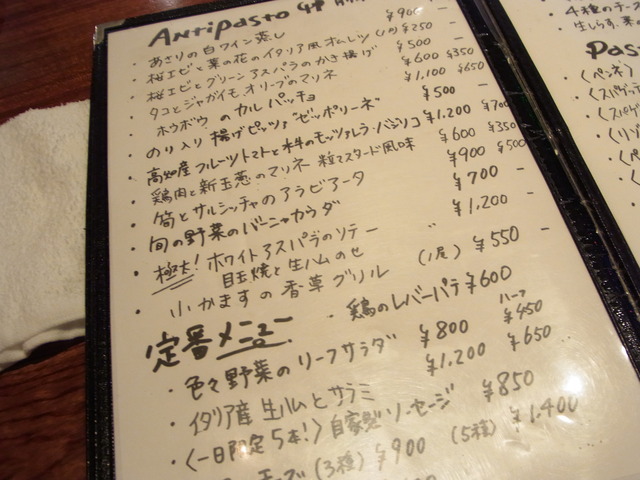 Antipasto
・あさりの白ワイン蒸し ¥900 -
・桜エビと菜の花のイタリア風オムレツ (1ケ) ¥250 -
・桜エビとグリーンアスパラのかき揚げ ¥500 -
・タコとジャガイモ、オリーブのマリネ ¥600 ¥350
・ホウボウのカルパッチョ ¥1,100 ¥650
・のり入り揚げピッツァ"ゼッポリーネ" ¥500 -
・高知産フルーツトマトと水牛のモッツァレラ・バジリコ ¥1,200 ¥700
・鶏肉と新玉葱のマリネ 粒マスタード風味 ¥600 ¥350
・筍とサルシッチャのアラビアータ ¥900 ¥500
・旬の野菜のバーニャカウダ ¥700 -
・極太!ホワイトアスパラのソテー 〃 ¥1,200 -
目玉焼と生ハムのせ
・小かますの香草グリル (1尾) ¥550 -
定番メニュー
・鶏のレバーパテ ¥600
ハーフ
・色々野菜のリーフサラダ ¥800 ¥450
・イタリア産 生ハムとサラミ ¥1,200 ¥650
・〈一日限定5本!〉自家製ソーセージ ¥850
(3種) ¥900 (5種) ¥1,400
4種のチーズ
生しらす、
Pas
〈ペンネ〉
〈スパゲッ
〈スパゲ